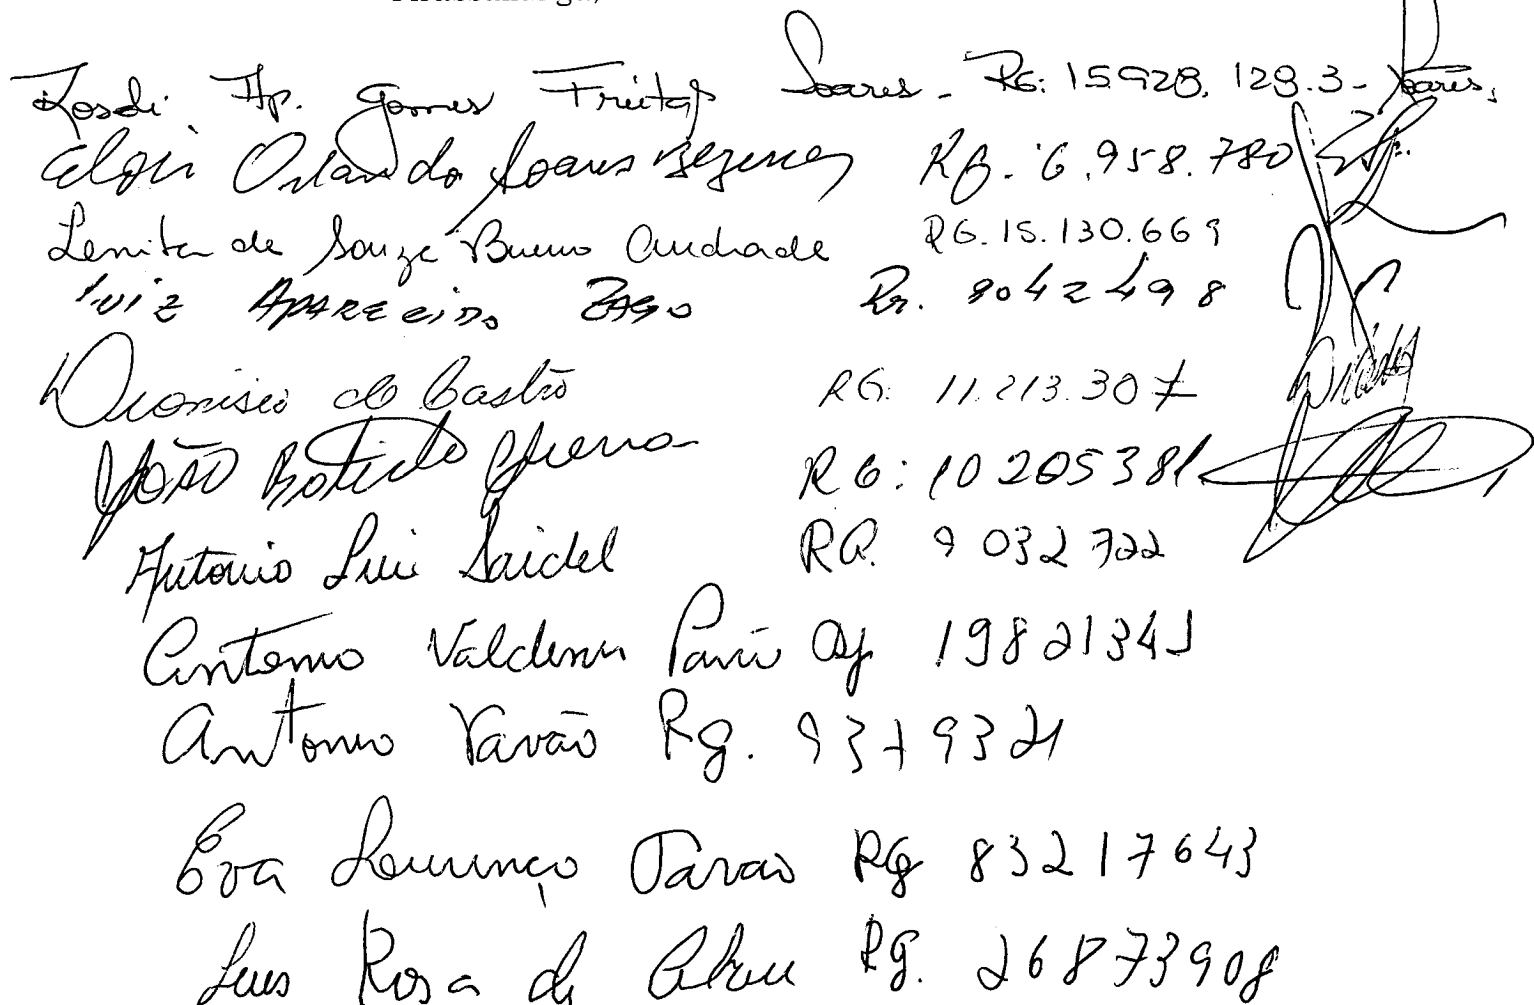 Ap. Gomes Freitas Soares - RG: 15.928.129.3 - Soares,
Orlando Soares Bezerra RG. 6.958.780
Lenita de Souza Bueno Andrade RG. 15.130.669
Luiz Aparecido Zago RG. 9042498
Dionisio de Castro RG. 11.213.307
João Batista RG: 10205381
Antonio Luiz Saidel RG. 9032722
Antonio Rg 19821341
Antonio Vavão Rg. 9379321
Eva Lourenço Rg 83217643
Luis Rosa de Abreu Rg. 26873908